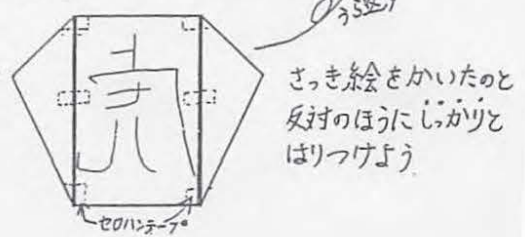 さっき絵をかいたのと
反対のほうにしっかりと
はりつけよう
セロハンテープ